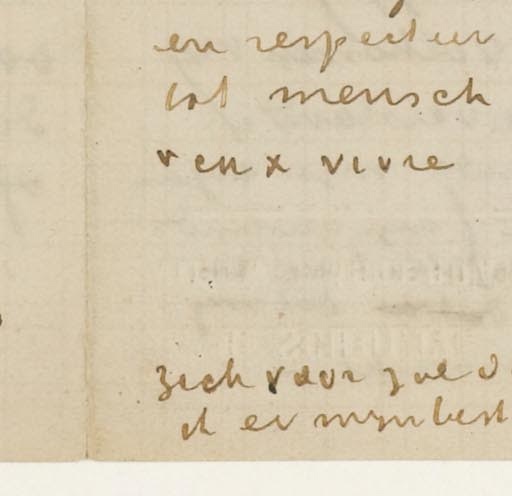 en respecteer
tot mensch
veux vivre
zich voor zoo
ik er mijn best